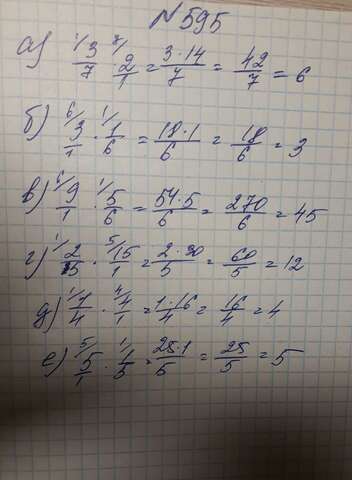 №595
а) ¹/ 3/7 ⁷/ 2/1 = 3·14/7 = 42/7 = 6
б) ⁶/ 3/1 · ¹/ 1/6 = 18·1/6 = 18/6 = 3
в) ⁶/ 9/1 · ¹/ 5/6 = 54·5/6 = 270/6 = 45
г) ¹/ 2/5 · ⁵/ 15/1 = 2·30/5 = 60/5 = 12
д) ¹/ 1/4 · ⁴/ 4/1 = 1·16/4 = 16/4 = 4
е) ⁵/ 5/1 · ¹/ 1/5 = 25·1/5 = 25/5 = 5